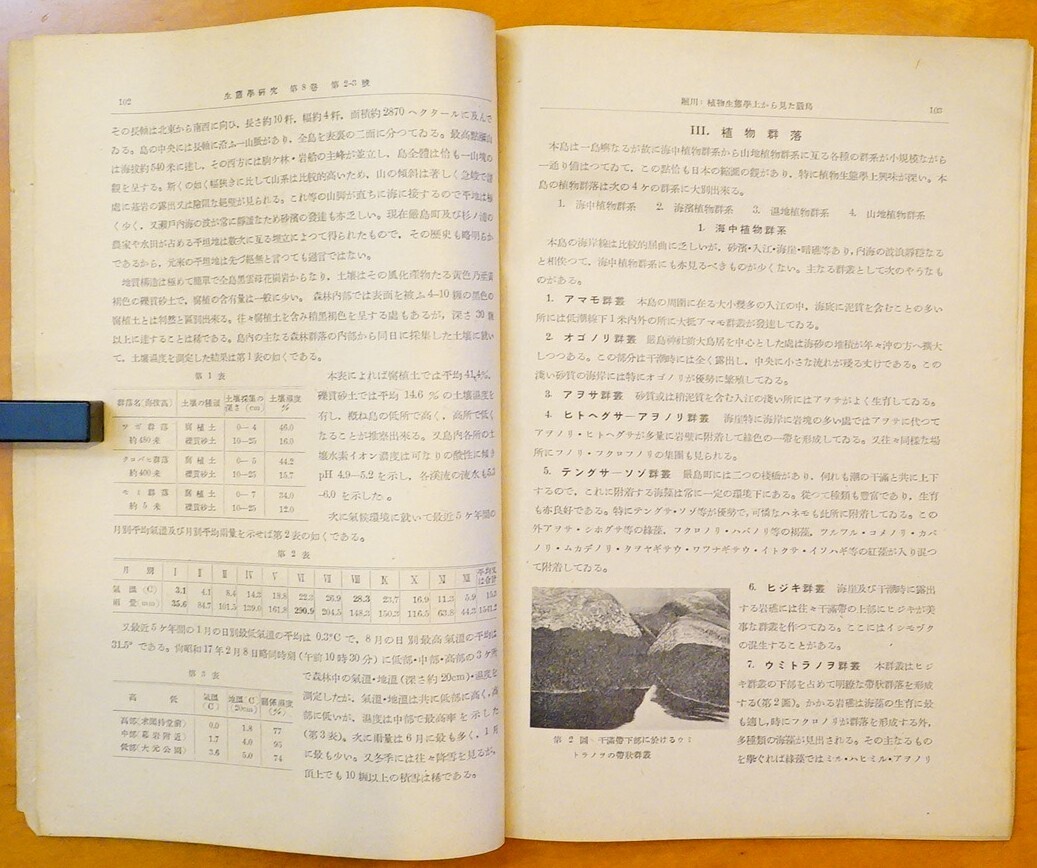 102
生態學研究 第8巻 第2-3號
その長軸は北東から南西に向ひ、長さ約10粁，幅約4粁，面積約2870ヘクタールに及んで
ゐる。島の中央には長軸に沿ふ一山脈があり，全島を表裏の二面に分つてゐる。最高點彌山
は海抜約540米に達し，その西方には駒ケ林・岩船の主峰が並立し，島全體は恰も一山塊の
觀を呈する。斯くの如く幅狹きに比して山系は比較的高いため，山の傾斜は著しく急峻で
處に基岩の露出又は絶壁が見られる。これ等の山脚が直ちに海に接するので平地は極
く少く，又瀬戸内海の波が常に靜謐なため砂濱の發達も亦乏しい。現在嚴島町及び杉ノ浦の
農家や水田が占める平坦地は數次に亙る埋立によつて得られたもので，その歴史も略明らか
であるから，元來の平坦地は先づ絶無と言つても過言ではない。
地質構造は極めて簡單で全島黑雲母花崗岩からなり，土壤はその風化產物たる黄色乃至黄
褐色の礫質砂土で，腐植の含有量は一般に少い。森林内部では表面を被ふ4-10糎の黑色の
腐植土とは判然と區別出來る。往々腐植土を含み植黑褐色を呈する處もあるが，深さ30糎
以上に達することは稀である。島内の主なる森林群落の内部から同日に採集した土壤に就い
て，土壤濕度を測定した結果は第1表の如くである。
第 1 表
群落名(海拔高) 土壤の種類 土壤採集の深さ(cm) 土壤濕度%
ツガ群落 腐植土 0—4 46.0
約480米 礫質砂土 10—25 16.0
クロバヒ群落 腐植土 0—5 44.2
約400米 礫質砂土 10—25 15.7
モミ群落 腐植土 0—7 34.0
約5米 礫質砂土 10—25 12.0
本表によれば腐植土では平均41.4%，
礫質砂土では平均14.6%の土壤濕度を
有し，概ね島の低所で高く，高所で低く
なることが推察出來る。又島内各所の土
壤水素イオン濃度は可なりの酸性に傾き
pH 4.9—5.2を示し，各溪流の流水も5.3
-6.0を示した。
次に氣候環境に就いて最近5ケ年間の
月別平均氣溫及び月別平均雨量を示せば第2表の如くである。
第 2 表
月別 I II III IV V VI VII VIII IX X XI XII 平均又は合計
氣溫(C) 3.1 4.1 8.4 14.3 18.8 22.3 26.9 28.3 23.7 16.9 11.3 5.9
雨量(mm) 35.6 84.7 101.5 139.0 161.8 290.9 204.5 148.3 150.3 116.5 63.8 44.3
又最近5ケ年間の1月の日別最低氣溫の平均は0.3°Cで，8月の日別最高氣溫の平均は
31.5°である。尙昭和17年2月8日略同時刻(午前10時30分)に低部・中部・高部の3ケ所
第 3 表
高低 氣溫(C) 地溫(C)(20cm) 關係濕度(%)
高部(求聞持堂前) 0.0 1.8 77
中部(幕岩附近) 1.7 4.0 95
低部(大元公園) 3.6 5.0 74
で森林中の氣溫・地溫(深さ約20cm)・濕度を
測定したが，氣溫・地溫は共に低部に高く，高
部に低いが，濕度は中部で最高率を示した
(第3表)。次に雨量は6月に最も多く，1月
に最も少い。又冬季には往々降雪を見るが，
頂上でも10糎以上の積雪は稀である。
堀川：植物生態學上から見た嚴島
103
III. 植物群落
本島は一島嶼なるが故に海中植物群系から山地植物群系に亙る各種の群系が小規模ながら
一通り備はつてゐて，この點恰も日本の縮圖の觀があり，特に植物生態學上興味が深い。本
島の植物群落は次の4ケの群系に大別出來る。
1. 海中植物群系 2. 海濱植物群系 3. 濕地植物群系 4. 山地植物群系
1. 海中植物群系
本島の海岸線は比較的屈曲に乏しいが，砂濱・入江・海崖・暗礁等あり，内海の波浪靜穩なる
と相俟つて，海中植物群系にも亦見るべきものが少くない。主なる群叢として次のやうなも
のがある。
1. アマモ群叢 本島の周圍に在る大小幾多の入江の中，海底に泥質を含むことの多い
所には低潮線下1米内外の所に大抵アマモ群叢が發達してゐる。
2. オゴノリ群叢 嚴島神社前大鳥居を中心とした處は海砂の堆積が年々沖の方へ擴大
しつつある。この部分は干潮時には全く露出し，中央に小さな流れが殘る丈けである。この
淺い砂質の海岸には特にオゴノリが優勢に繁殖してゐる。
3. アヲサ群叢 砂質或は稍泥質を含む入江の淺い所にはアヲサがよく生育してゐる。
4. ヒトヘグサ—アヲノリ群叢 海崖特に海岸に岩塊の多い處ではアヲサに代つて
アヲノリ・ヒトヘグサが多量に岩壁に附着して綠色の一帶を形成してゐる。又往々同樣な場
所にフノリ・フクロフノリの集團も見られる。
5. テングサ—ソゾ群叢 嚴島町には二つの棧橋があり，何れも潮の干滿と共に上下
するので，これに附着する海藻は常に一定の環境下にある。從つて種類も豐富であり，生育
も亦良好である。特にテングサ・ソゾ等が優勢で，可憐なハネモも此所に附着してゐる。この
外アヲサ・シホグサ等の綠藻，フクロノリ・ハバノリ等の褐藻，フルフル・コメノリ・カバ
ノリ・ムカデノリ・タヲヤギサウ・ワツナギサウ・イトクサ・イソハギ等の紅藻が入り混つ
て附着してゐる。
6. ヒジキ群叢 海崖及び干潮時に露出
する岩礁には往々干滿帶の上部にヒジキが美
事な群叢を作つてゐる。ここにはイシモヅク
の混生することがある。
7. ウミトラノヲ群叢 本群叢はヒジ
キ群叢の下部を占めて明瞭な帶狀群落を形成
する(第2圖)。かかる岩礁は海藻の生育に最
も適し，時にフクロノリが群落を形成する外，
多種類の海藻が見出される。その主なるもの
を擧ぐれば綠藻ではミル・ハヒミル・アヲノリ
第 2 圖 干滿帶下部に於けるウミ
トラノヲの帶狀群叢